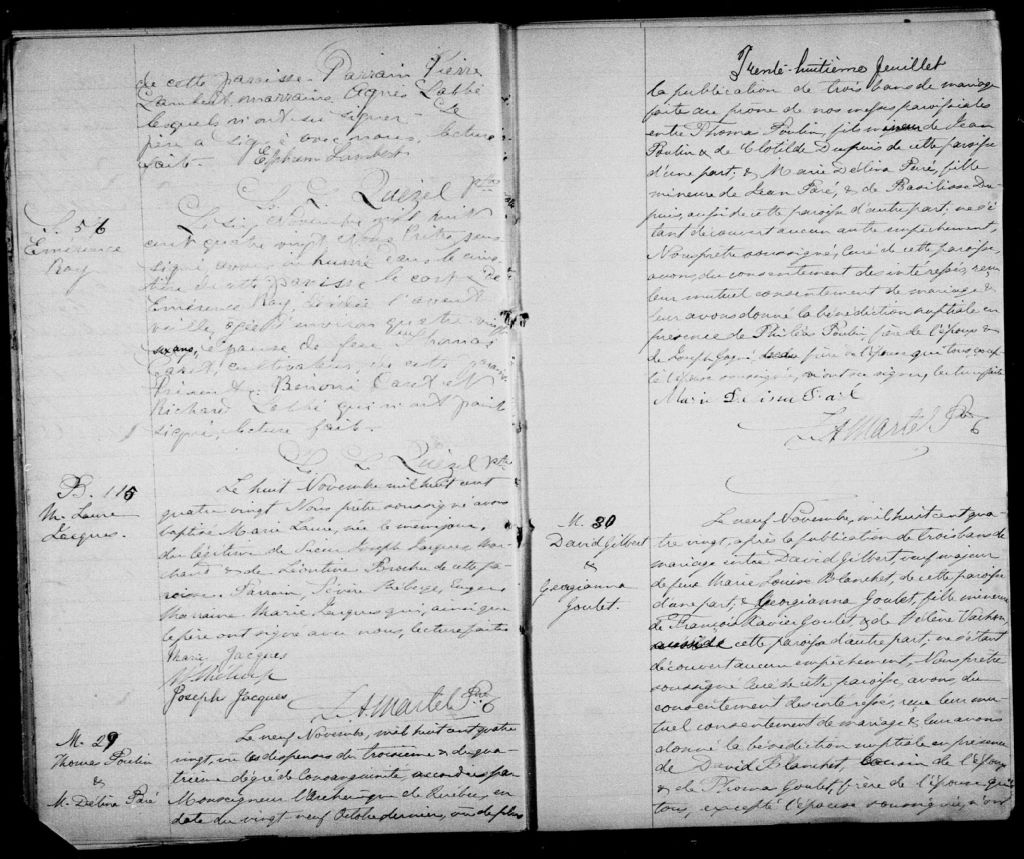 de cette paroisse. Parrain Pierre
Lambert, marraine Agnès Labbé
lesquels n'ont su signer. Le
père a signé avec nous, lecture
faite.
Ephrem Lambert
L. Z. Quézel Ptre
S. 56
Emérence
Roy
Le six Novembre mil huit
cent quatre vingt, Nous Prêtre sous
signé, avons inhumé dans le cime
tière de cette paroisse le corps de
Emérence Roy, décédée l'avant
veille, agée d'environ quatre vingt
six ans, épouse de feu
cultivateur, de cette paroisse
Présents Benoni et
Richard Labbé qui n'ont point
signé, lecture faite.
L. Z. Quézel Ptre
B. 115
M. Laure
Jacques.
Le huit Novembre mil huit cent
quatre vingt Nous prêtre soussigné avons
baptisé Marie Laure, née le même jour,
du légitime de Sieur Joseph Jacques, mar
chand & de Léontine Brochu de cette pa
roisse. Parrain, Sévère Théberge,
Marraine Marie Jacques qui, ainsi que
le père ont signé avec nous, lecture faite
Marie Jacques
Joseph Jacques
J. A. Martel Ptre
M. 29
Thomas Poulin
&
M. Délina Paré
Le neuf Novembre, mil huit cent quatre
vingt, vu les dispenses du troisième & du qua
trième dégré de Consanguinité, accordées par
Monseigneur l'Archevêque de Québec, en
date du vingt neuf Octobre dernier, vu de plus
Trente-huitième feuillet
la publication de trois bans de mariage
faite au prône de nos messes paroissiales
entre Thomas Poulin, fils mineur de Jean
Poulin & de Clotilde Dupuis de cette paroisse
d'une part; & Marie Délina Paré, fille
mineure de Jean Paré, & de Basilisse Du
puis, aussi de cette paroisse d'autre part; ne s'é
tant découvert aucun autre empêchement,
Nous prêtre soussigné, Curé de cette paroisse,
avons, du consentement des intéressés, reçu
leur mutuel consentement de mariage &
leur avons donné la bénédiction nuptiale en
présence de Philéas Poulin, frère de l'époux &
de Joseph Gagné frère de l'épouse qui tous, excep
té l'épouse soussignée, n'ont su signer, lecture faite
Marie Delina Paré
J. A. Martel Ptre
M. 30
David Gilbert
&
Georgianna
Goulet.
Le neuf Novembre, mil huit cent qua
tre vingt, après la publication de trois bans de
mariage entre David Gilbert, veuf majeur
de feue Marie Louise Blanchet, de cette paroisse
d'une part; & Georgianna Goulet, fille mineure
de François Xavier Goulet, & de Hélène Vachon,
aussi de cette paroisse d'autre part; ne s'étant
découvert aucun empêchement, Nous prêtre
soussigné Curé de cette paroisse, avons, du
consentement des intéressés, reçu leur mu
tuel consentement de mariage & leur avons
donné la bénédiction nuptiale en présence
de David Blanchet, cousin de l'époux
& de Thomas Goulet, frère de l'épouse qui
tous, excepté l'épouse soussignée, n'ont